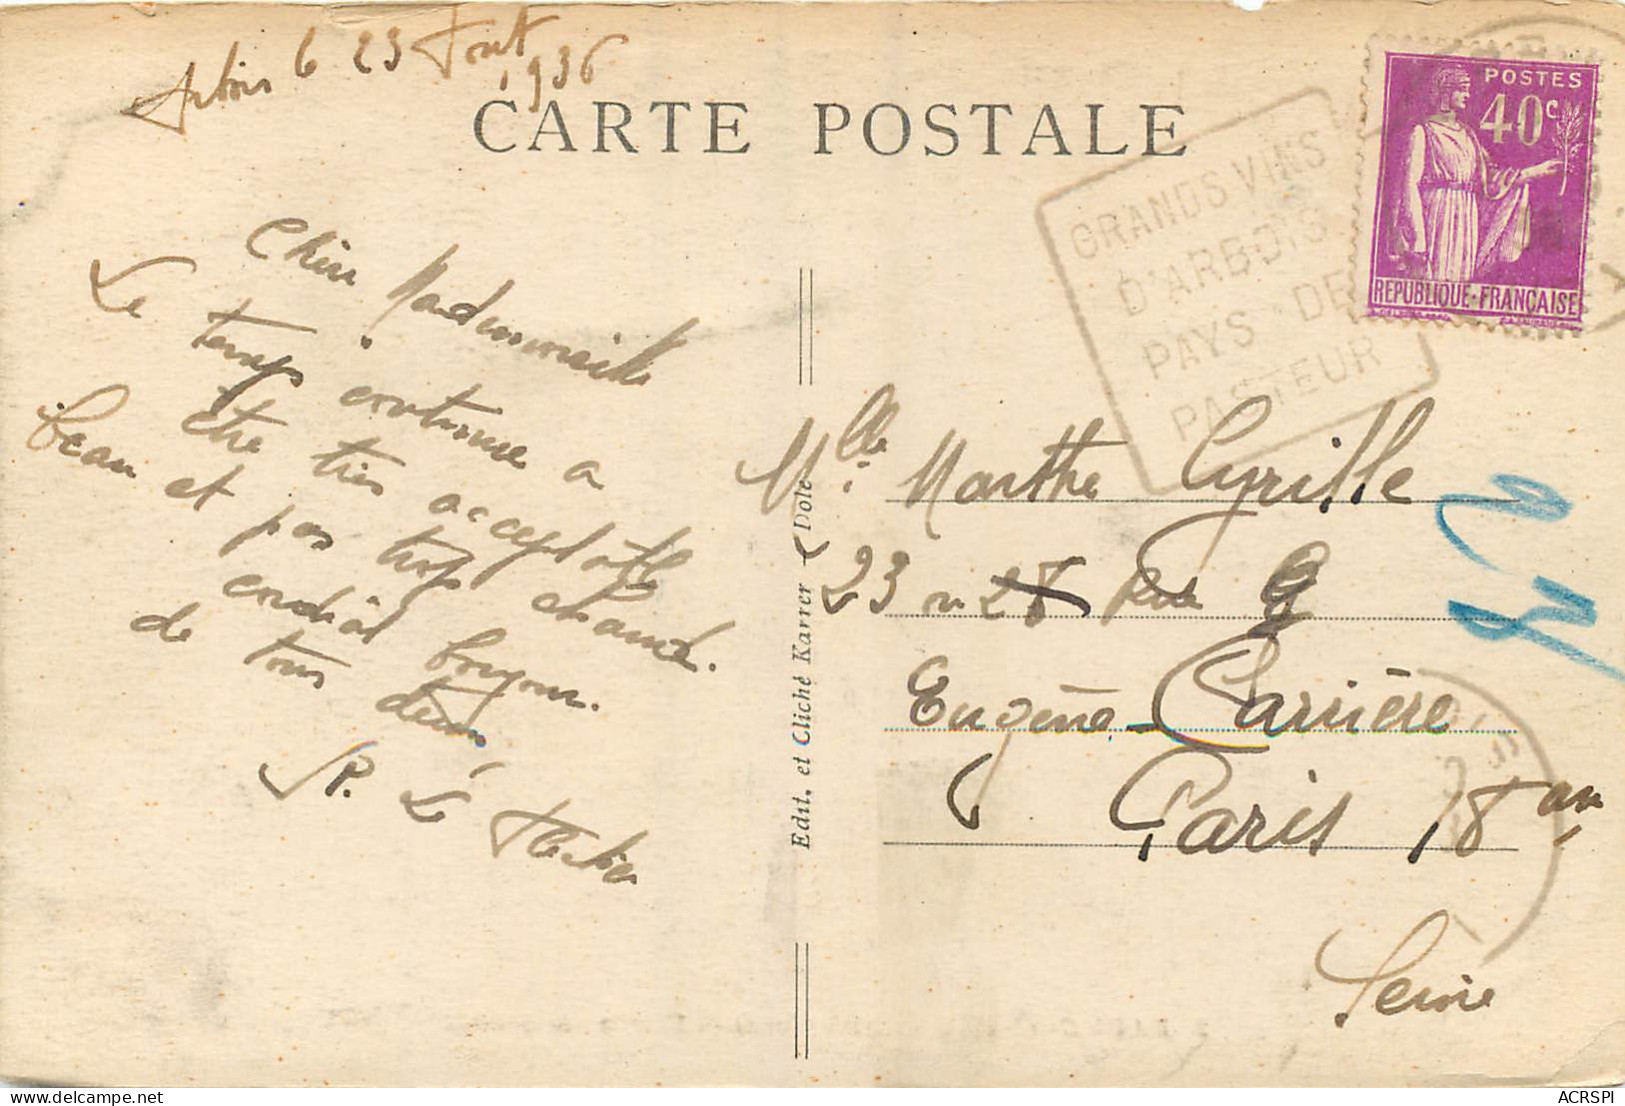 Arbois le 23 Aout
1936
CARTE POSTALE
Chère Mademoiselle
Le temps continue a
être très acceptable
beau et pas trop chaud.
cordial bonjour
de tous deux,
P. Le
Edit. et Cliché Karrer Dole
GRANDS VINS
D'ARBOIS
PAYS DE
PASTEUR
POSTES
40c
REPUBLIQUE-FRANÇAISE
Mlle Marthe Cyrille
23 rue
Eugène Carrière
Paris 18
Seine
ACRSPI